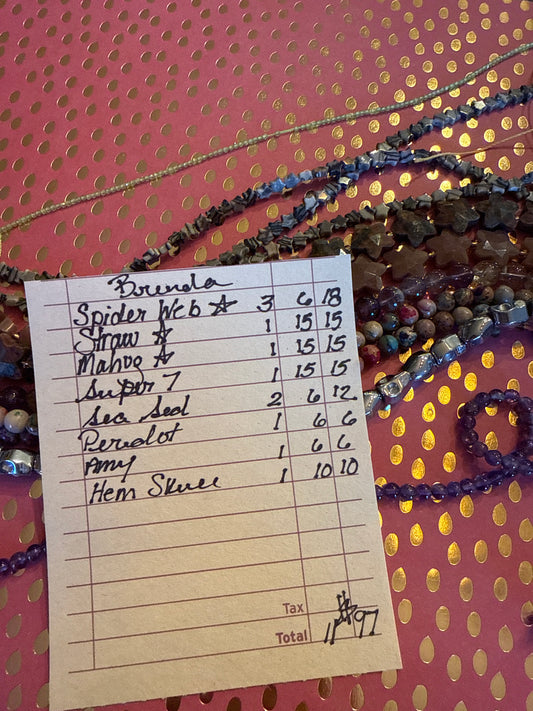 Brenda
Spider Web ☆ 3 6 18
Straw ☆ 1 15 15
Mahog ☆ 1 15 15
Super 7 1 15 15
Sea Sed 2 6 12
Peridot 1 6 6
Amy 1 6 6
Hem Skull 1 10 10
Tax
Total $ 97